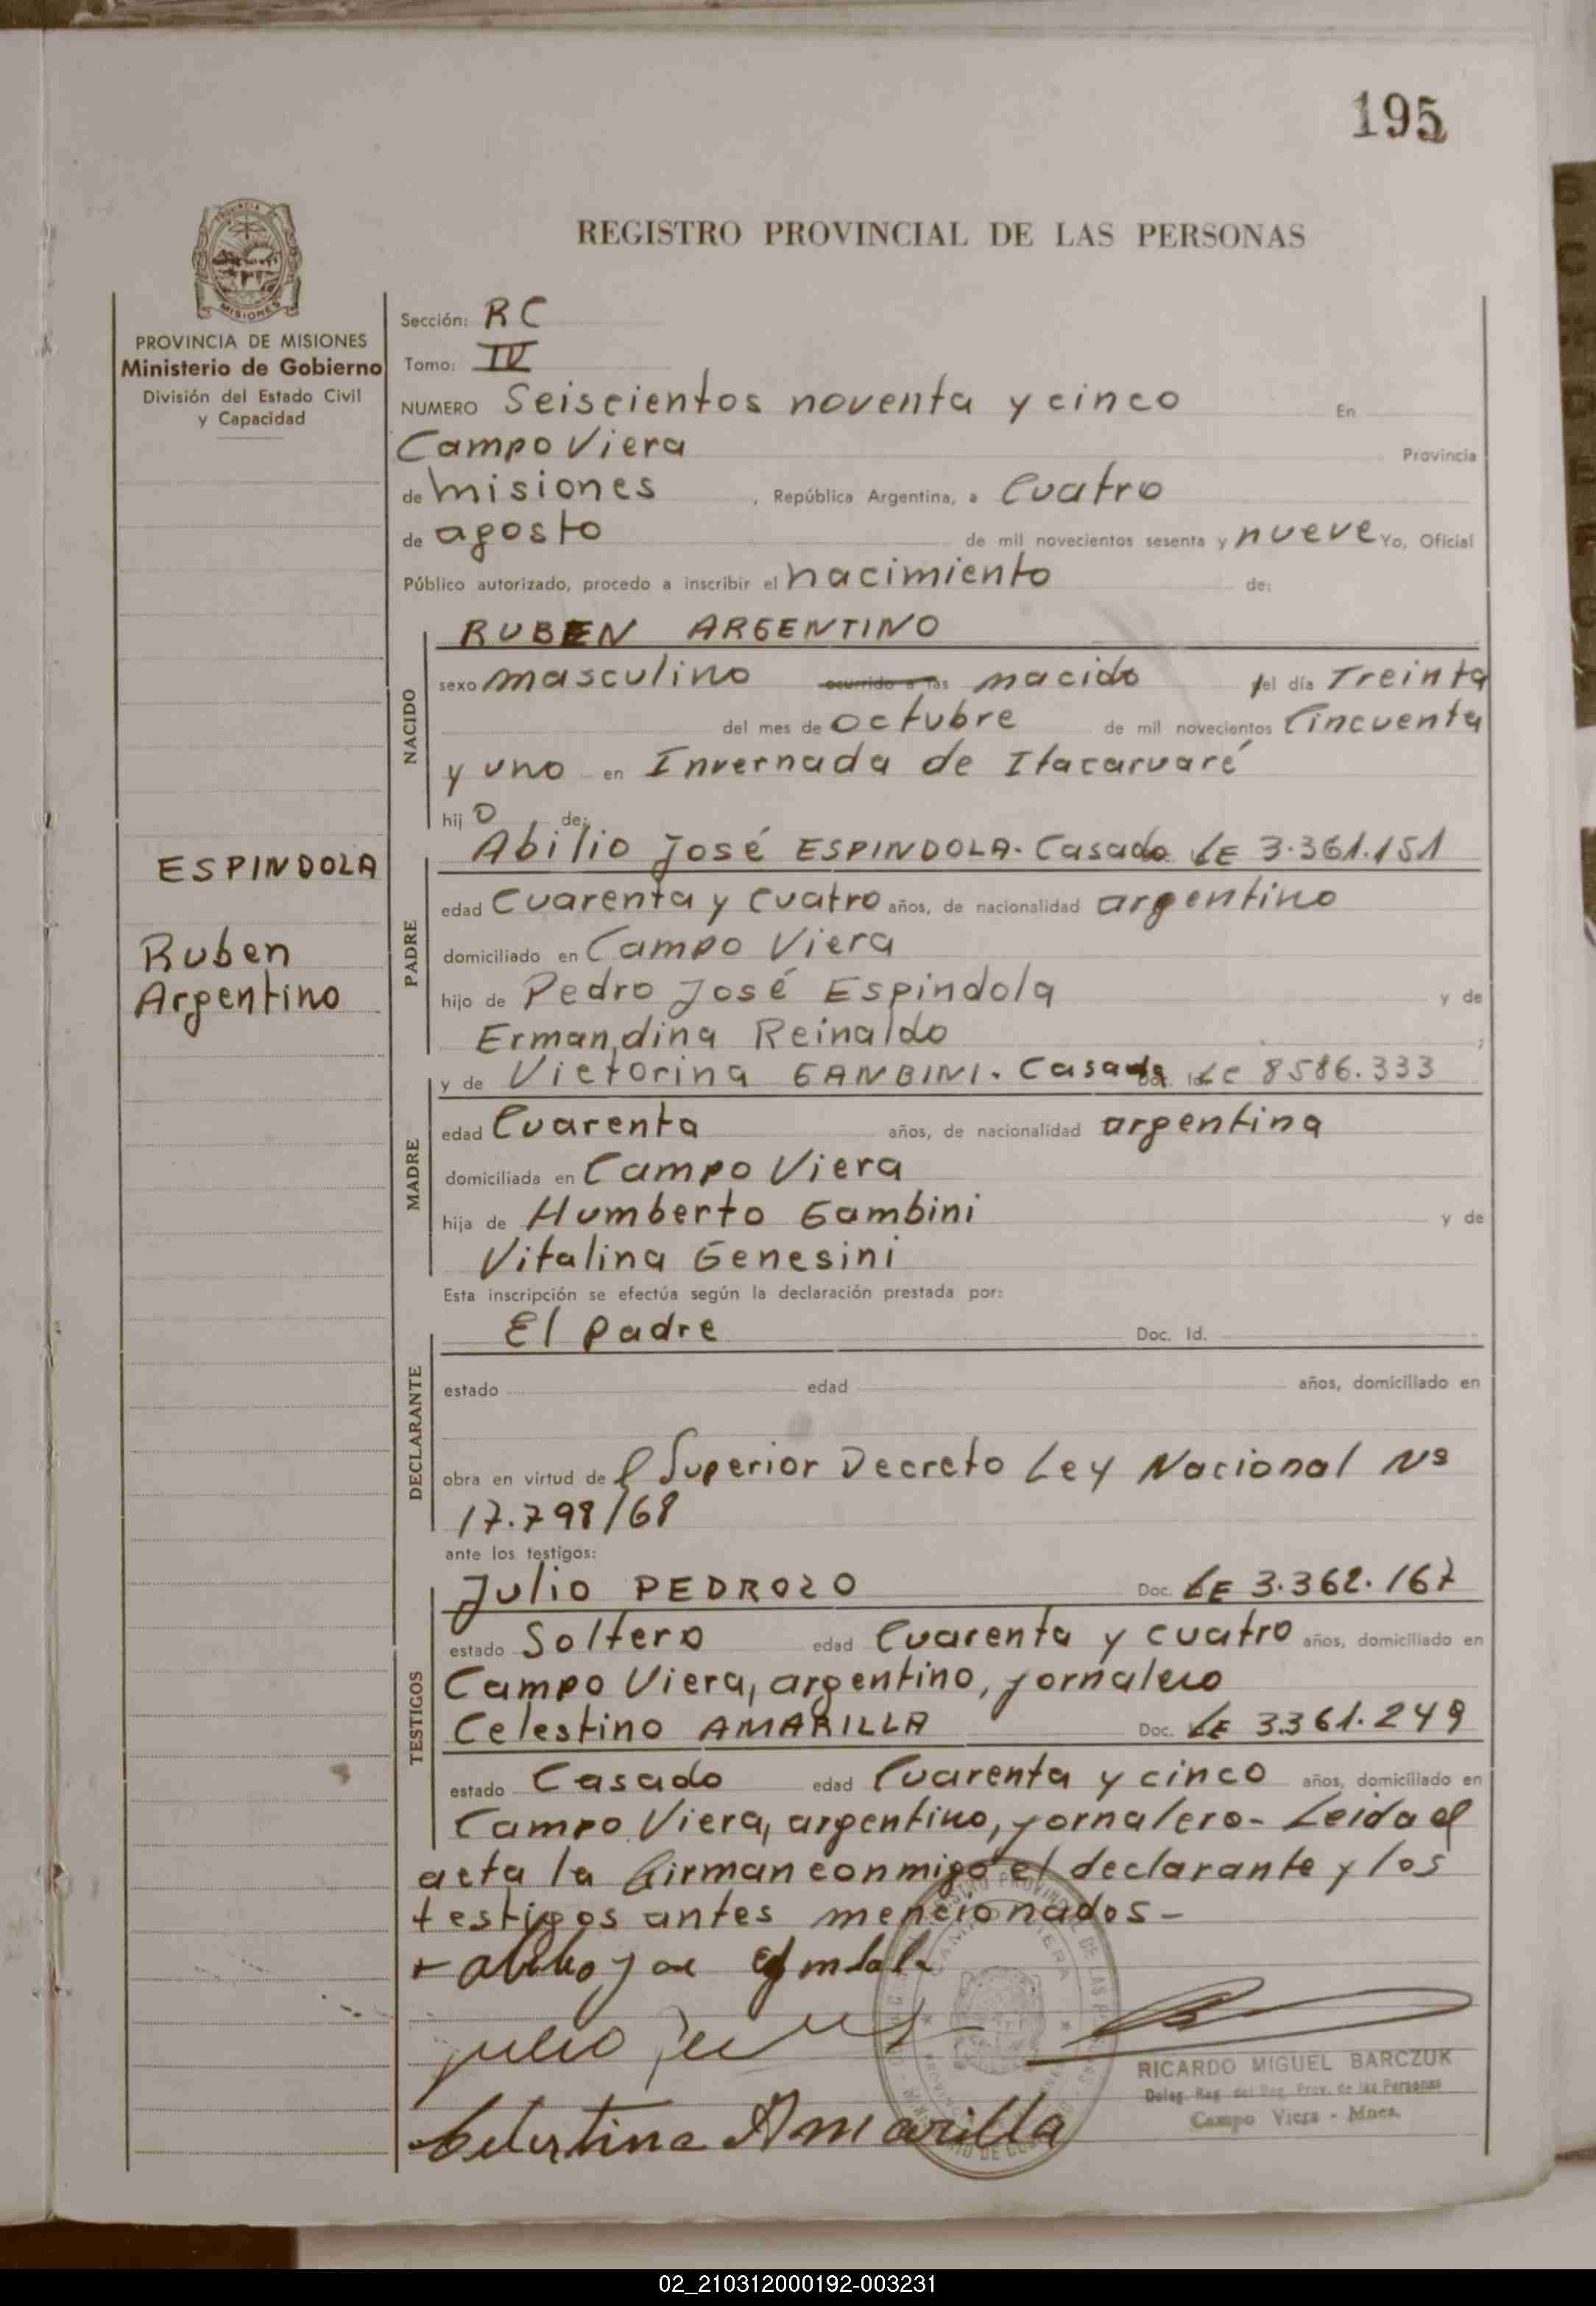 195
REGISTRO PROVINCIAL DE LAS PERSONAS
MISIONES
PROVINCIA DE MISIONES
Ministerio de Gobierno
División del Estado Civil
y Capacidad
ESPINDOLA
Ruben
Argentino
Sección: RC
Tomo: IV
NUMERO Seiscientos noventa y cinco En
Campo Viera Provincia
de misiones, República Argentina, a Cuatro
de agosto de mil novecientos sesenta y nueve Yo, Oficial
Público autorizado, procedo a inscribir el nacimiento de:
NACIDO
RUBEN ARGENTINO
sexo masculino ocurrido a las nacido el día Treinta
del mes de octubre de mil novecientos Cincuenta
y uno en Invernada de Itacaruaré
hijo de:
PADRE
Abilio José ESPINDOLA. Casado LE 3.361.151
edad Cuarenta y cuatro años, de nacionalidad argentino
domiciliado en Campo Viera
hijo de Pedro José Espindola y de
Ermandina Reinaldo ;
MADRE
y de Victorina GANBINI. Casada LC 8586.333
edad Cuarenta años, de nacionalidad argentina
domiciliada en Campo Viera
hija de Humberto Gambini y de
Vitalina Genesini
Esta inscripción se efectúa según la declaración prestada por:
DECLARANTE
El padre Doc. Id.
estado edad años, domiciliado en
obra en virtud de l Superior Decreto Ley Nacional Nº
17.798/68
ante los testigos:
TESTIGOS
Julio PEDROZO Doc. LE 3.362.167
estado Soltero edad Cuarenta y cuatro años, domiciliado en
Campo Viera, argentino, jornalero
Celestino AMARILLA Doc. LE 3.361.249
estado Casado edad Cuarenta y cinco años, domiciliado en
Campo Viera, argentino, jornalero- Leida el
acta la firman conmigo el declarante y los
testigos antes mencionados-
Celestino Amarilla
RICARDO MIGUEL BARCZUK
Deleg. Reg. del Reg. Prov. de las Personas
Campo Viera - Mnes.
02_210312000192-003231